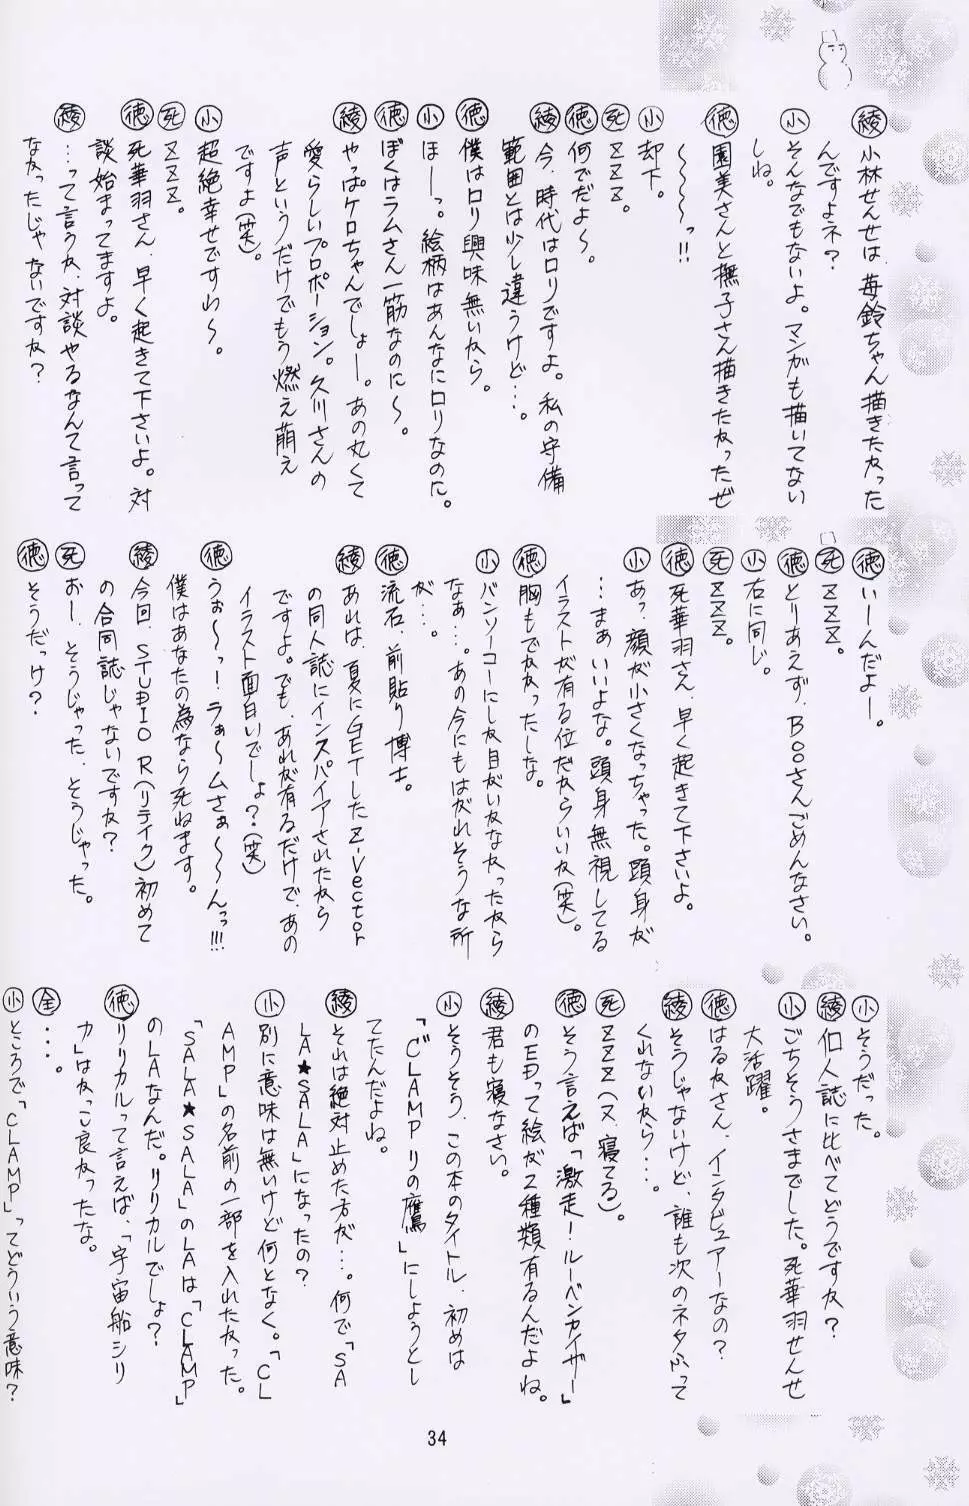 綾 小林せんせは、苺鈴ちゃん描きたかった
んですよネ?
小 そんなでもないよ。マンガも描いてない
しね。
徳 園美さんと撫子さん描きたかったぜ
〜〜〜〜っ!!
小 却下。
死 ZZZ。
徳 何でだよ〜。
綾 今、時代はロリですよ。私の守備
範囲とは少し違うけど…。
徳 僕はロリ興味無いから。
小 ほーっ。絵柄はあんなにロリなのに。
徳 ぼくはラムさん一筋なのに〜。
綾 やっぱケロちゃんでしょー。あの丸くて
愛らしいプロポーション。久川さんの
声というだけでもう燃え萌え
ですよ(笑)。
小 超絶幸せですわ〜。
死 ZZZ。
徳 死華羽さん、早く起きて下さいよ。対
談始まってますよ。
綾 …って言うか、対談やるなんて言って
なかったじゃないですか?
徳 いーんだよー。
死 ZZZ。
徳 とりあえず、BOOさんごめんなさい。
小 右に同じ。
死 ZZZ。
徳 死華羽さん、早く起きて下さいよ。
小 あっ、顔が小さくなっちゃった。頭身が
…まぁいいよな。頭身無視してる
イラストが有る位だからいいか(笑)。
徳 胸もでかかったしな。
小 バンソーコーにしか目がいかなかったから
なぁ…。あの今にもはがれそうな所
が…。
徳 流石、前貼り博士。
綾 あれは、夏にGETしたZ-Vector
の同人誌にインスパイアされたから
ですよ。でも、あれが有るだけで、あの
イラスト面白いでしょ?(笑)
徳 うぉ〜っ!ラぁ〜ムさぁ〜〜〜んっ!!!
僕はあなたの為なら死ねます。
綾 今回、STUDIO R(リテイク)初めて
の合同誌じゃないですか?
死 おー、そうじゃった、そうじゃった。
徳 そうだっけ?
小 そうだった。
綾 個人誌に比べてどうですか?
小 ごちそうさまでした。死華羽せんせ
大活躍。
徳 はるかさん、インタビュアーなの?
綾 そうじゃないけど、誰も次のネタふって
くれないから…。
死 ZZZ(又、寝てる)。
徳 そう言えば「激走!ルーベンカイザー」
のEDって絵が2種類有るんだよね。
綾 君も寝なさい。
小 そうそう、この本のタイトル、初めは
「CLAMPリの鷹」にしようとし
てたんだよね。
綾 それは絶対止めた方が…。何で「SA
LA★SALA」になったの?
小 別に意味は無いけど何となく。「CL
AMP」の名前の一部を入れたかった。
「SALA★SALA」のLAは「CLAMP」
のLAなんだ。リリカルでしょ?
徳 リリカルって言えば、「宇宙船シリ
カ」はかっこ良かったな。
全 …。
小 ところで「CLAMP」ってどういう意味?
34